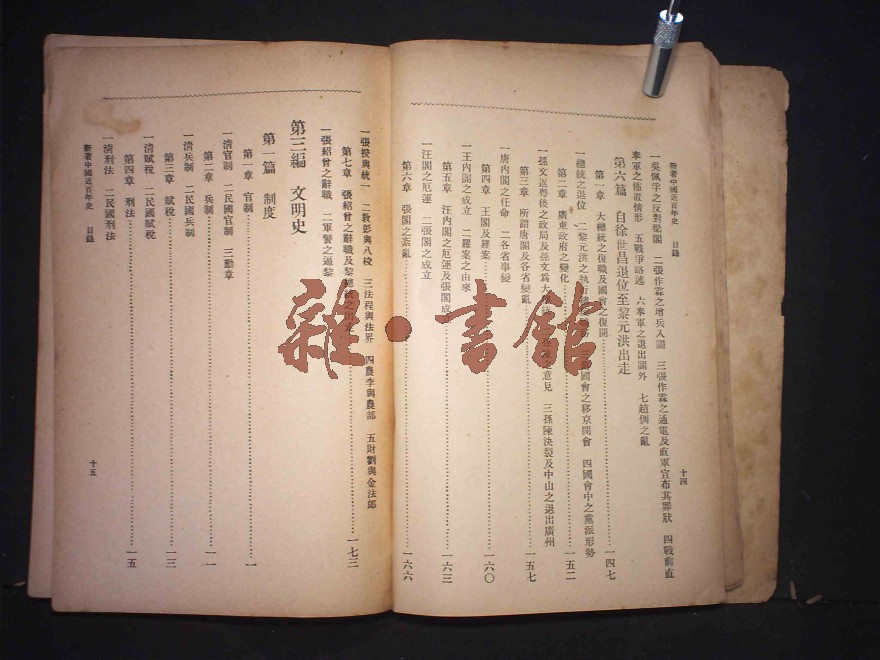 新著中國近百年史 目錄
十四
一吳佩孚之反對梁閣 二張作霖之增兵入關 三張作霖之通電及直軍宣布其罪狀 四戰前直
奉軍之佈置情形 五戰爭略述 六奉軍之退出關外 七趙倜之亂
第六篇 自徐世昌退位至黎元洪出走
第一章 大總統之復職及國會之復開 一四七
一總統之退位 二黎元洪之 國會之移京開會 四國會中之黨派形勢
第二章 廣東政府之變化 一五二
一孫文返粵後之政局及孫文爲大 意見 三孫陳決裂及中山之退出廣州
第三章 所謂唐閣及各省變亂 一五七
一唐內閣之任命 二各省事變
第四章 王閣及羅案 一六〇
一王內閣之成立 二羅案之由來
第五章 汪內閣之厄運及張閣成立 一六三
一汪閣之厄運 二張閣之成立
第六章 張閣之紊亂 一六六
一張揆與統一 二教彭與八校 三法程與法界 四農李與農部 五財劉與金法郎
第七章 張紹曾之辭職及黎總統之出走 一七三
一張紹曾之辭職 二軍警之逼黎
第三編 文明史
第一篇 制度
第一章 官制 一
一清官制 二民國官制 三勳章
第二章 兵制 一一
一清兵制 二民國兵制
第三章 賦稅 一三
一清賦稅 二民國賦稅
第四章 刑法 一五
一清刑法 二民國刑法
新著中國近百年史 目錄
十五
雜·書館